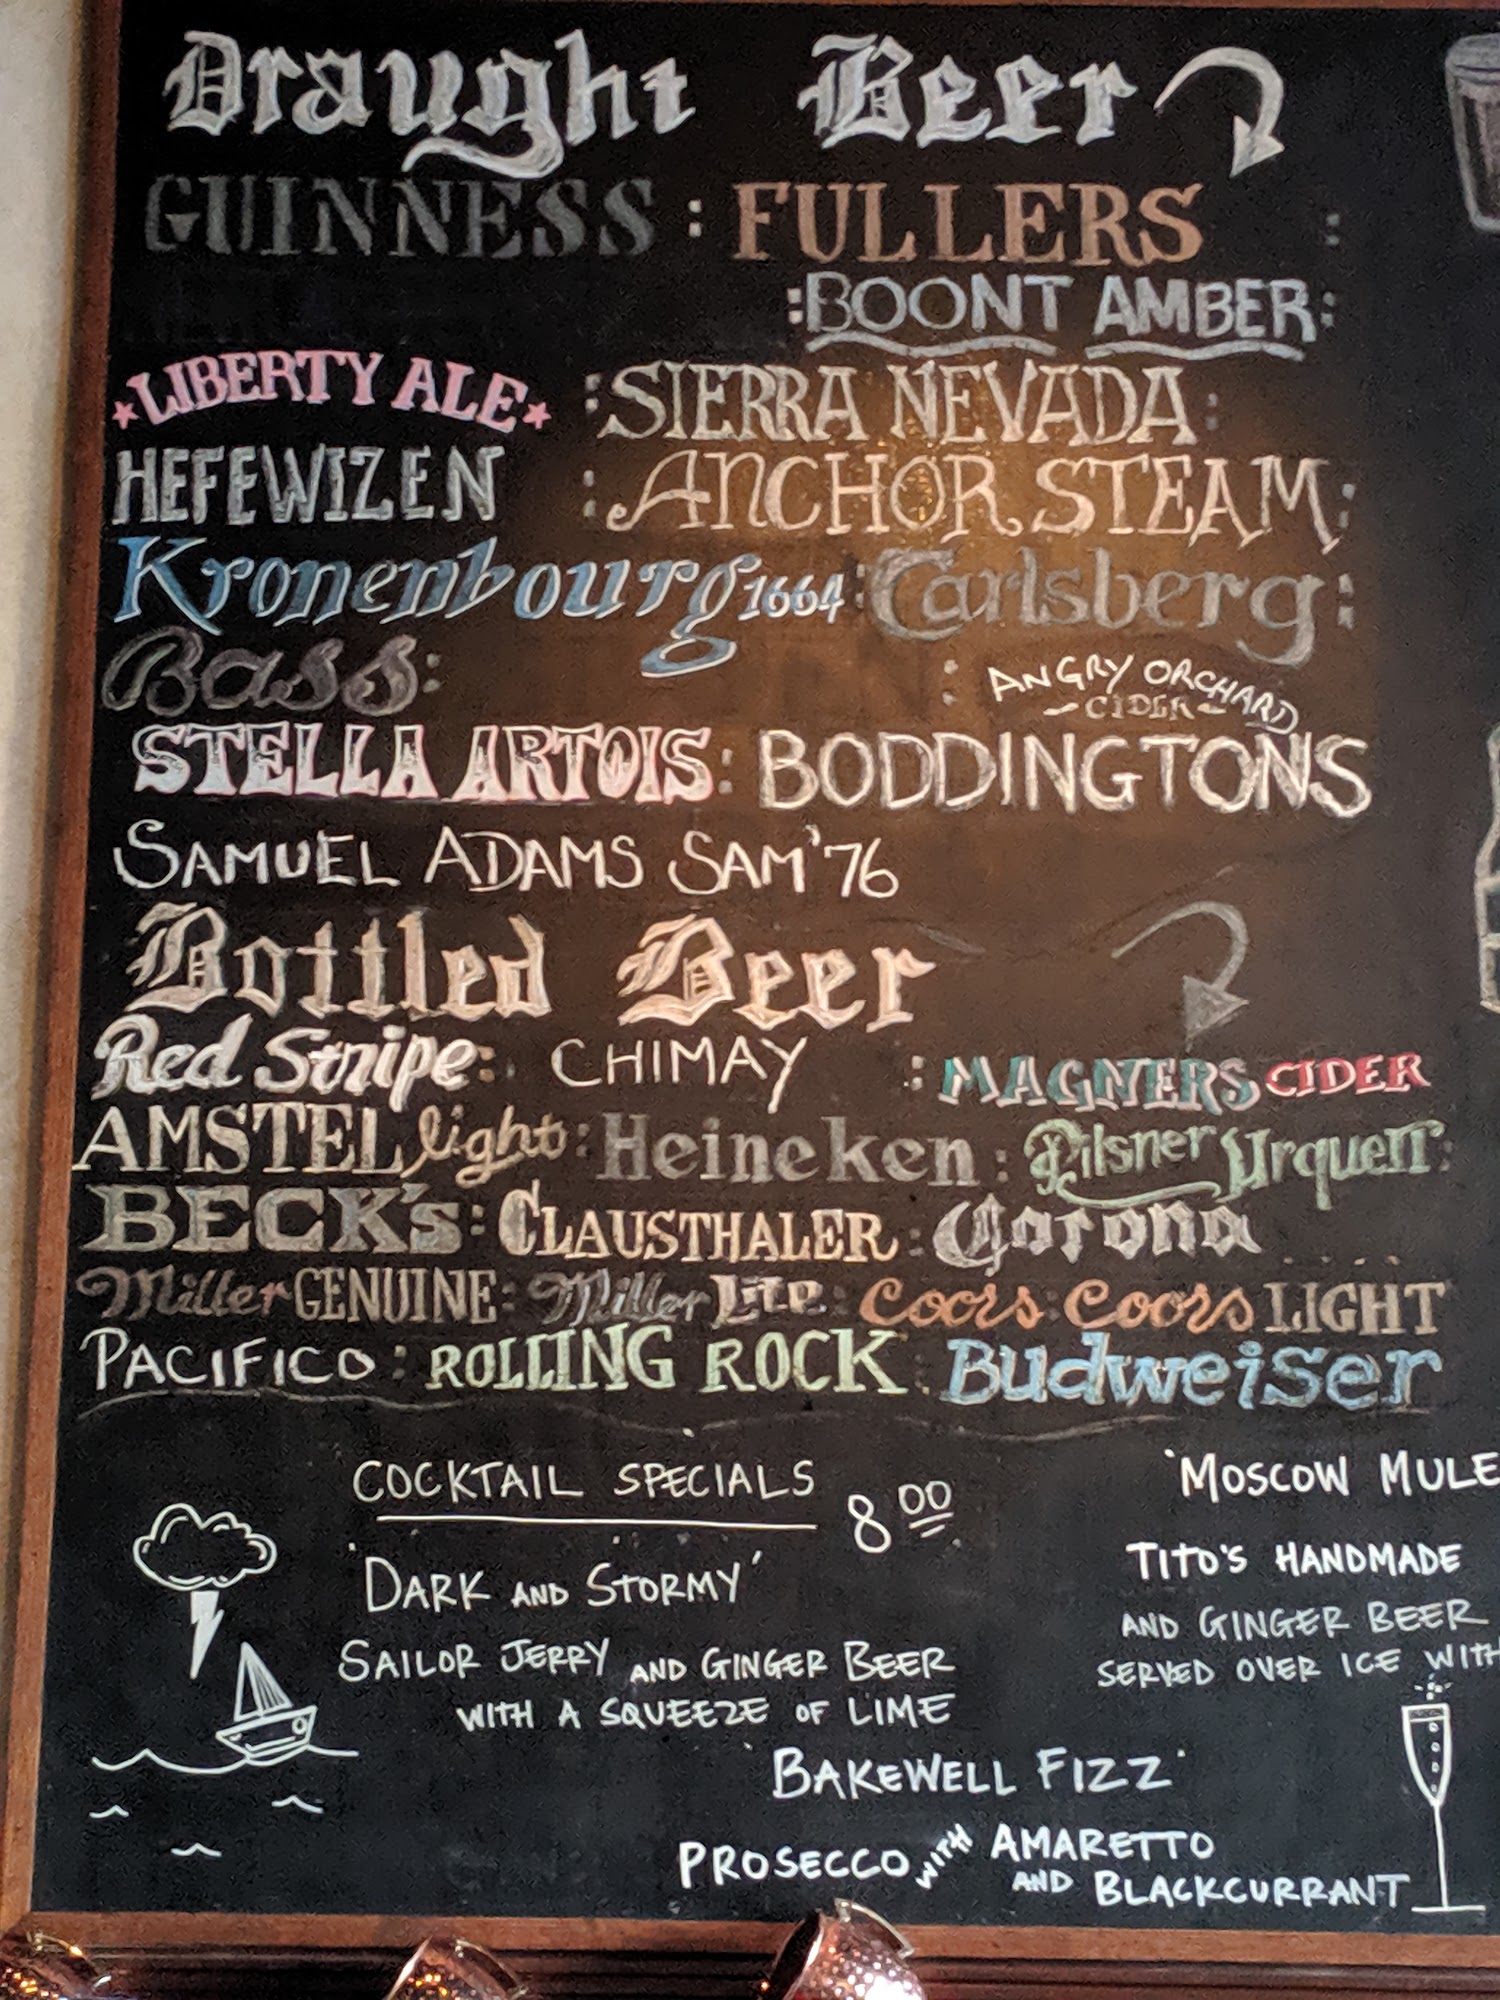 Draught Beer
GUINNESS : FULLERS :
: BOONT AMBER :
LIBERTY ALE : SIERRA NEVADA :
HEFEWIZEN : ANCHOR STEAM :
Kronenbourg 1664 : Carlsberg :
Bass : : ANGRY ORCHARD
- CIDER -
STELLA ARTOIS : BODDINGTONS
SAMUEL ADAMS SAM '76
Bottled Beer
Red Stripe : CHIMAY : MAGNERS CIDER
AMSTEL light : Heineken : Pilsner Urquell :
BECK'S : CLAUSTHALER : Corona
Miller GENUINE : Miller Lite : Coors : Coors LIGHT
PACIFICO : ROLLING ROCK : Budweiser
COCKTAIL SPECIALS 8 00
'DARK AND STORMY'
SAILOR JERRY AND GINGER BEER
WITH A SQUEEZE OF LIME
'MOSCOW MULE
TITO'S HANDMADE
AND GINGER BEER
SERVED OVER ICE WITH
'BAKEWELL FIZZ'
PROSECCO WITH AMARETTO
AND BLACKCURRANT